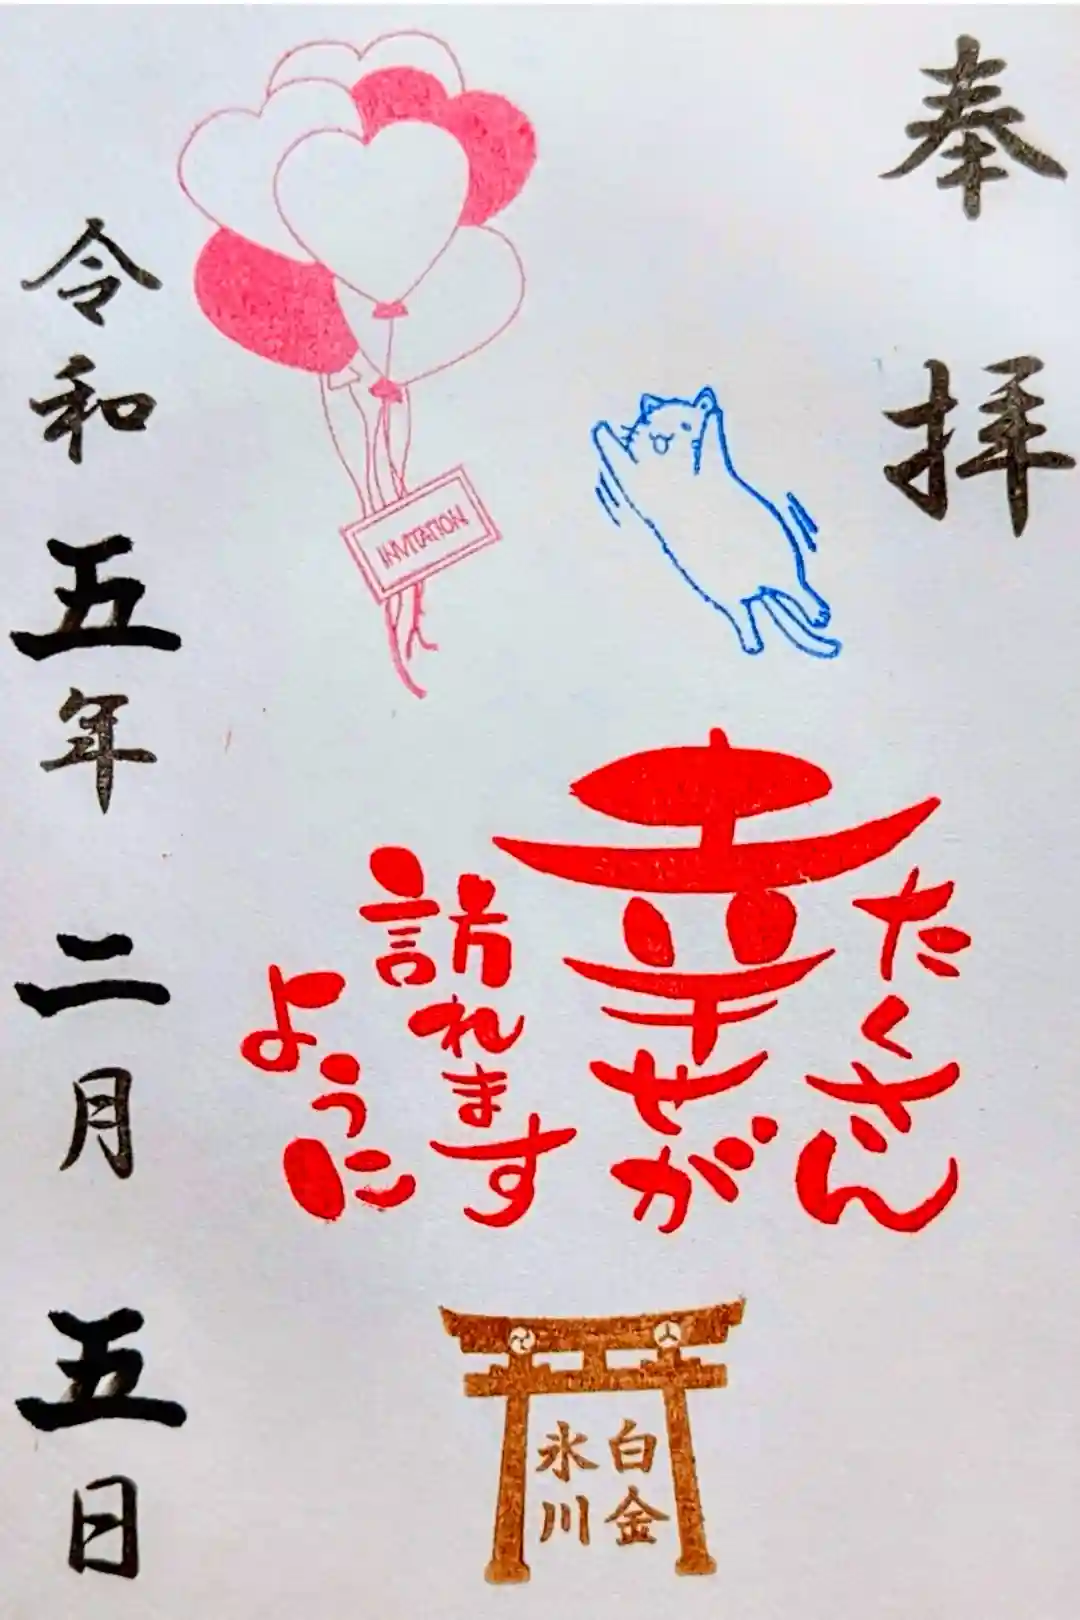 奉拝
INVITATION
たくさん
幸せが
訪れます
ように
白金
氷川
令和五年二月五日